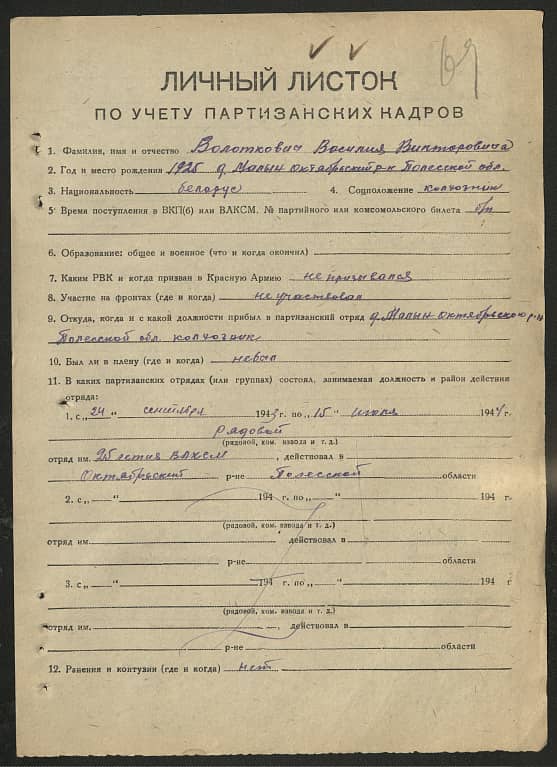 69
ЛИЧНЫЙ ЛИСТОК
ПО УЧЕТУ ПАРТИЗАНСКИХ КАДРОВ
1. Фамилия, имя и отчество Волоткович Василия Викторовича
2. Год и место рождения 1925 д. Малын Октябрьский р-н Полесской обл.
3. Национальность белорус 4. Соцположение колхозник
5. Время поступления в ВКП(б) или ВЛКСМ. № партийного или комсомольского билета б/п
6. Образование: общее и военное (что и когда окончил)
7. Каким РВК и когда призван в Красную Армию не призывался
8. Участие на фронтах (где и когда) не участвовал
9. Откуда, когда и с какой должности прибыл в партизанский отряд д. Малын Октябрьского р-на
Полесской обл. колхозник
10. Был ли в плену (где и когда) не был
11. В каких партизанских отрядах (или группах) состоял, занимаемая должность и район действия
отряда:
1. с „24“ сентября 1943 г. по „15“ июля 1944 г.
рядовой
(рядовой, ком. взвода и т. д.)
отряд им. 25 летия ВЛКСМ, действовал в
Октябрьский р-не Полесской области
2. с „ “ 194 г. по „ “ 194 г.
(рядовой, ком. взвода и т. д.)
отряд им. , действовал в
р-не области
3. с „ “ 194 г. по „ “ 194 г
(рядовой, ком. взвода и т. д.)
отряд им. , действовал в
р-не области
12. Ранения и контузии (где и когда) нет